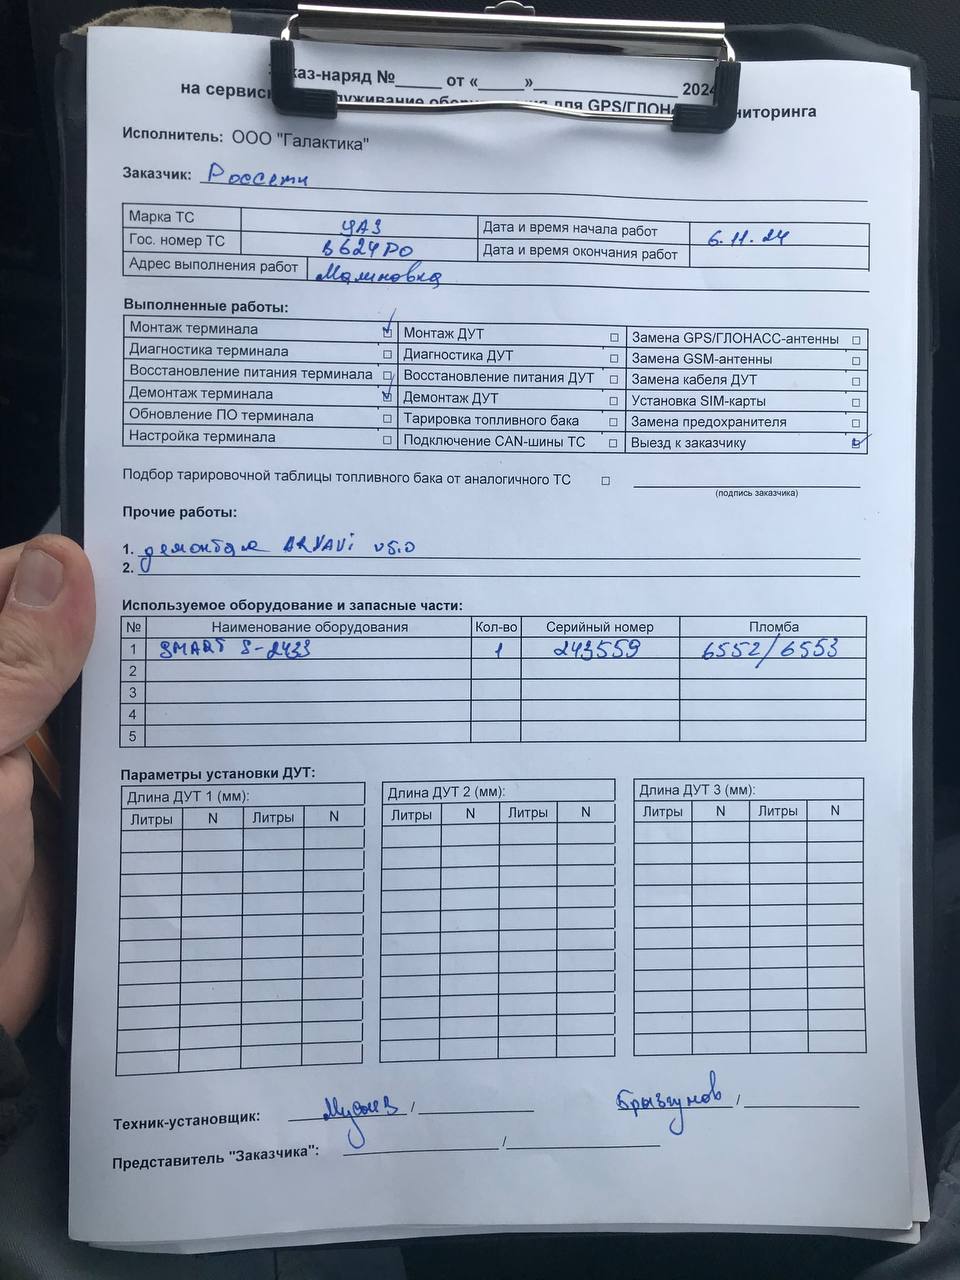 Заказ-наряд №_____ от «_____»_______________ 2024
на сервисное обслуживание оборудования для GPS/ГЛОНАСС мониторинга
Исполнитель: ООО "Галактика"
Заказчик: Россети
Марка ТС УАЗ Дата и время начала работ 6.11.24
Гос. номер ТС В624РО Дата и время окончания работ
Адрес выполнения работ Малиновка
Выполненные работы:
Монтаж терминала ☑ Монтаж ДУТ □ Замена GPS/ГЛОНАСС-антенны □
Диагностика терминала □ Диагностика ДУТ □ Замена GSM-антенны □
Восстановление питания терминала □ Восстановление питания ДУТ □ Замена кабеля ДУТ □
Демонтаж терминала ☑ Демонтаж ДУТ □ Установка SIM-карты □
Обновление ПО терминала □ Тарировка топливного бака □ Замена предохранителя □
Настройка терминала □ Подключение CAN-шины ТС □ Выезд к заказчику ☑
Подбор тарировочной таблицы топливного бака от аналогичного ТС □
(подпись заказчика)
Прочие работы:
1. демонтаж v5.0
2.
Используемое оборудование и запасные части:
№ Наименование оборудования Кол-во Серийный номер Пломба
1 SMART S-2433 1 243559 6552/6553
2
3
4
5
Параметры установки ДУТ:
Длина ДУТ 1 (мм): Длина ДУТ 2 (мм): Длина ДУТ 3 (мм):
Литры N Литры N Литры N Литры N Литры N Литры N
Техник-установщик: / Брызгунов /
Представитель "Заказчика": /